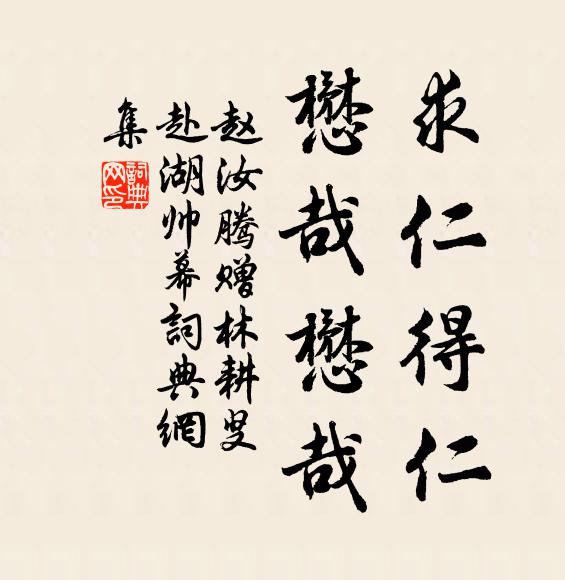 求仁得仁
懋哉懋哉
赵汝腾赠林耕叟
赴湖帅幕詞典網
集
詞典
网印